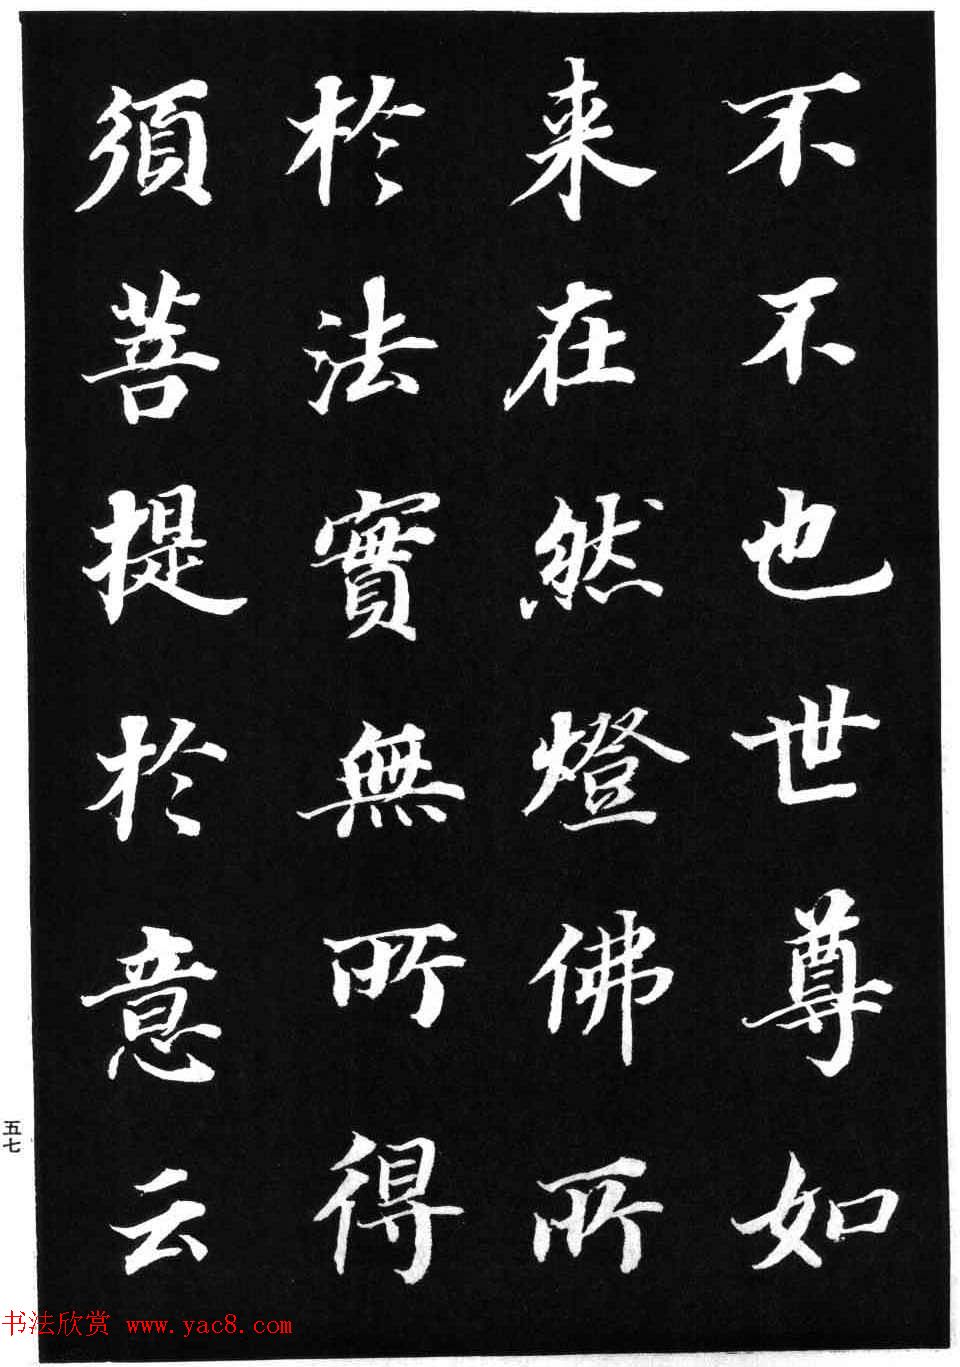 不不也世尊如
来在然燈佛所
於法實無所得
須菩提於意云
五七
书法欣赏 www.yac8.com